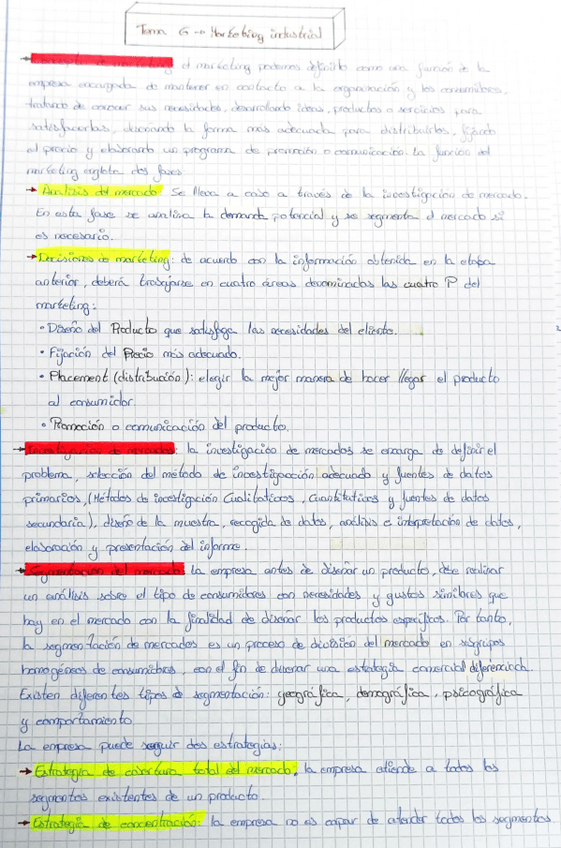 Tema 6 → Marketing industrial
→ Concepto de marketing: el marketing podemos definirlo como una función de la
empresa encargada de mantener en contacto a la organización y los consumidores,
tratando de conocer sus necesidades, desarrollando ideas, productos o servicios para
satisfacerlas, diseñando la forma más adecuada para distribuirlos, fijando
el precio y elaborando un programa de promoción o comunicación. La función del
marketing engloba dos fases
→ Analisis del mercado: Se lleva a cabo a través de la investigación de mercado.
En esta fase se analiza la demanda potencial y se segmenta el mercado si
es necesario.
→ Decisiones de marketing: de acuerdo con la información obtenida en la etapa
anterior, deberá trabajarse en cuatro áreas denominadas las cuatro P del
marketing:
• Diseño del Producto que satisfaga las necesidades del cliente.
• Fijación del Precio más adecuado.
• Placement (distribución): elegir la mejor manera de hacer llegar el producto
al consumidor.
• Promoción o comunicación del producto.
→ Investigación de mercados: la investigación de mercados se encarga de definir el
problema, selección del método de investigación adecuado y fuentes de datos
primarios, (Métodos de investigación Cualitativos, Cuantitativos y fuentes de datos
secundaria), diseño de la muestra, recogida de datos, análisis e interpretación de datos,
elaboración y presentación del informe.
→ Segmentación del mercado: la empresa antes de diseñar un producto, debe realizar
un análisis sobre el tipo de consumidores con necesidades y gustos similares que
hay en el mercado con la finalidad de diseñar los productos específicos. Por tanto,
la segmentación de mercados es un proceso de división del mercado en subgrupos
homogéneos de consumidores, con el fin de diseñar una estrategia comercial diferenciada.
Existen diferentes tipos de segmentación: geográfica, demográfica, psicográfica
y comportamiento.
La empresa puede seguir dos estrategias:
→ Estrategia de cobertura total del mercado: la empresa atiende a todos los
segmentos existentes de un producto.
→ Estrategia de concentración: la empresa no es capaz de atender todos los segmentos